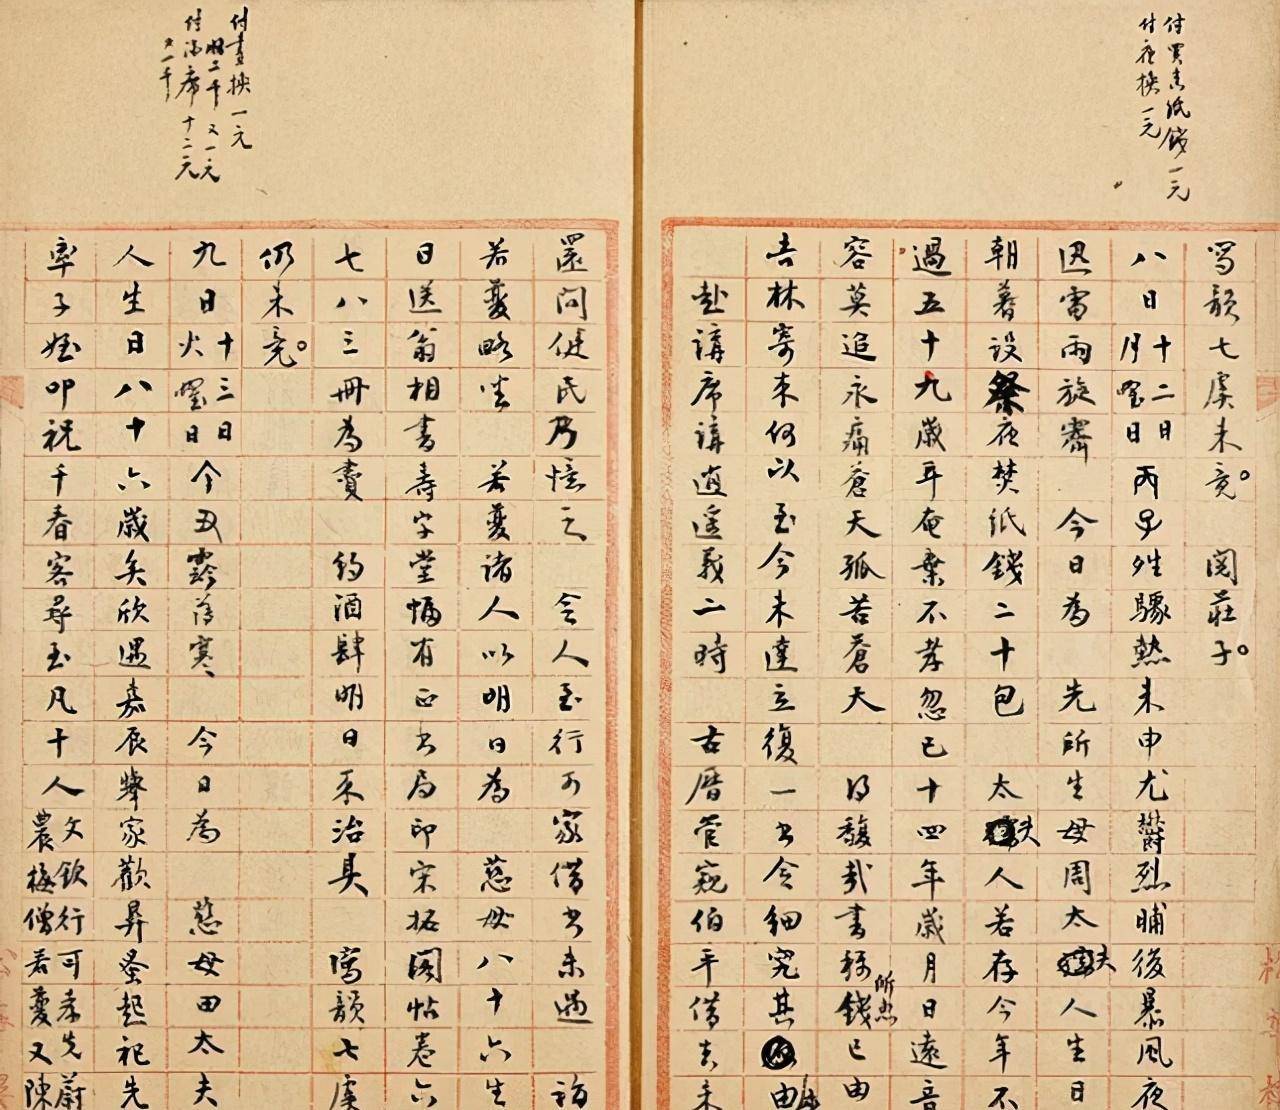 付買表紙錢一元
付夜换一元
写韻七虞未竟。 閱莊子。
八日 十二日月曜日 丙子 驟熱未申尤鬱烈晡後暴風夜
迅雷雨旋霽 今日為 先所生母周太夫人生日
朝暮設祭夜焚紙錢二十包 太夫人若存今年不
過五十九歲耳奄棄不孝忽已十四年歲月日遠音
容莫追永痛蒼天孤苦蒼天 得馥哉書稱所 錢已由
吉林寄来何以至今未達立復一书令細究其由
赴講席講逍遥義二時 古曆管窥伯平借去未
付畫换一元
二千 又一元
付酒席十二元
又一千
還问健民乃憶之 令人至行可家借书未遇 詣
若蘷略坐 若蘷諸人以明日為 慈母八十六生
日送翁相書壽字堂幅有正书局印宋拓閣帖卷六
七八三冊為贄 约酒肆明日来治具 寫韻七虞
仍未竟。
九日 十三日火曜日 今丑 寒 今日為 慈母田太夫
人生日八十六歲矣欣遇嘉辰舉家歡昇蚤起祀先
率子姪叩祝千春客尋至凡十人 文欽行可孝先蔚
農梅僧若蘷又陳